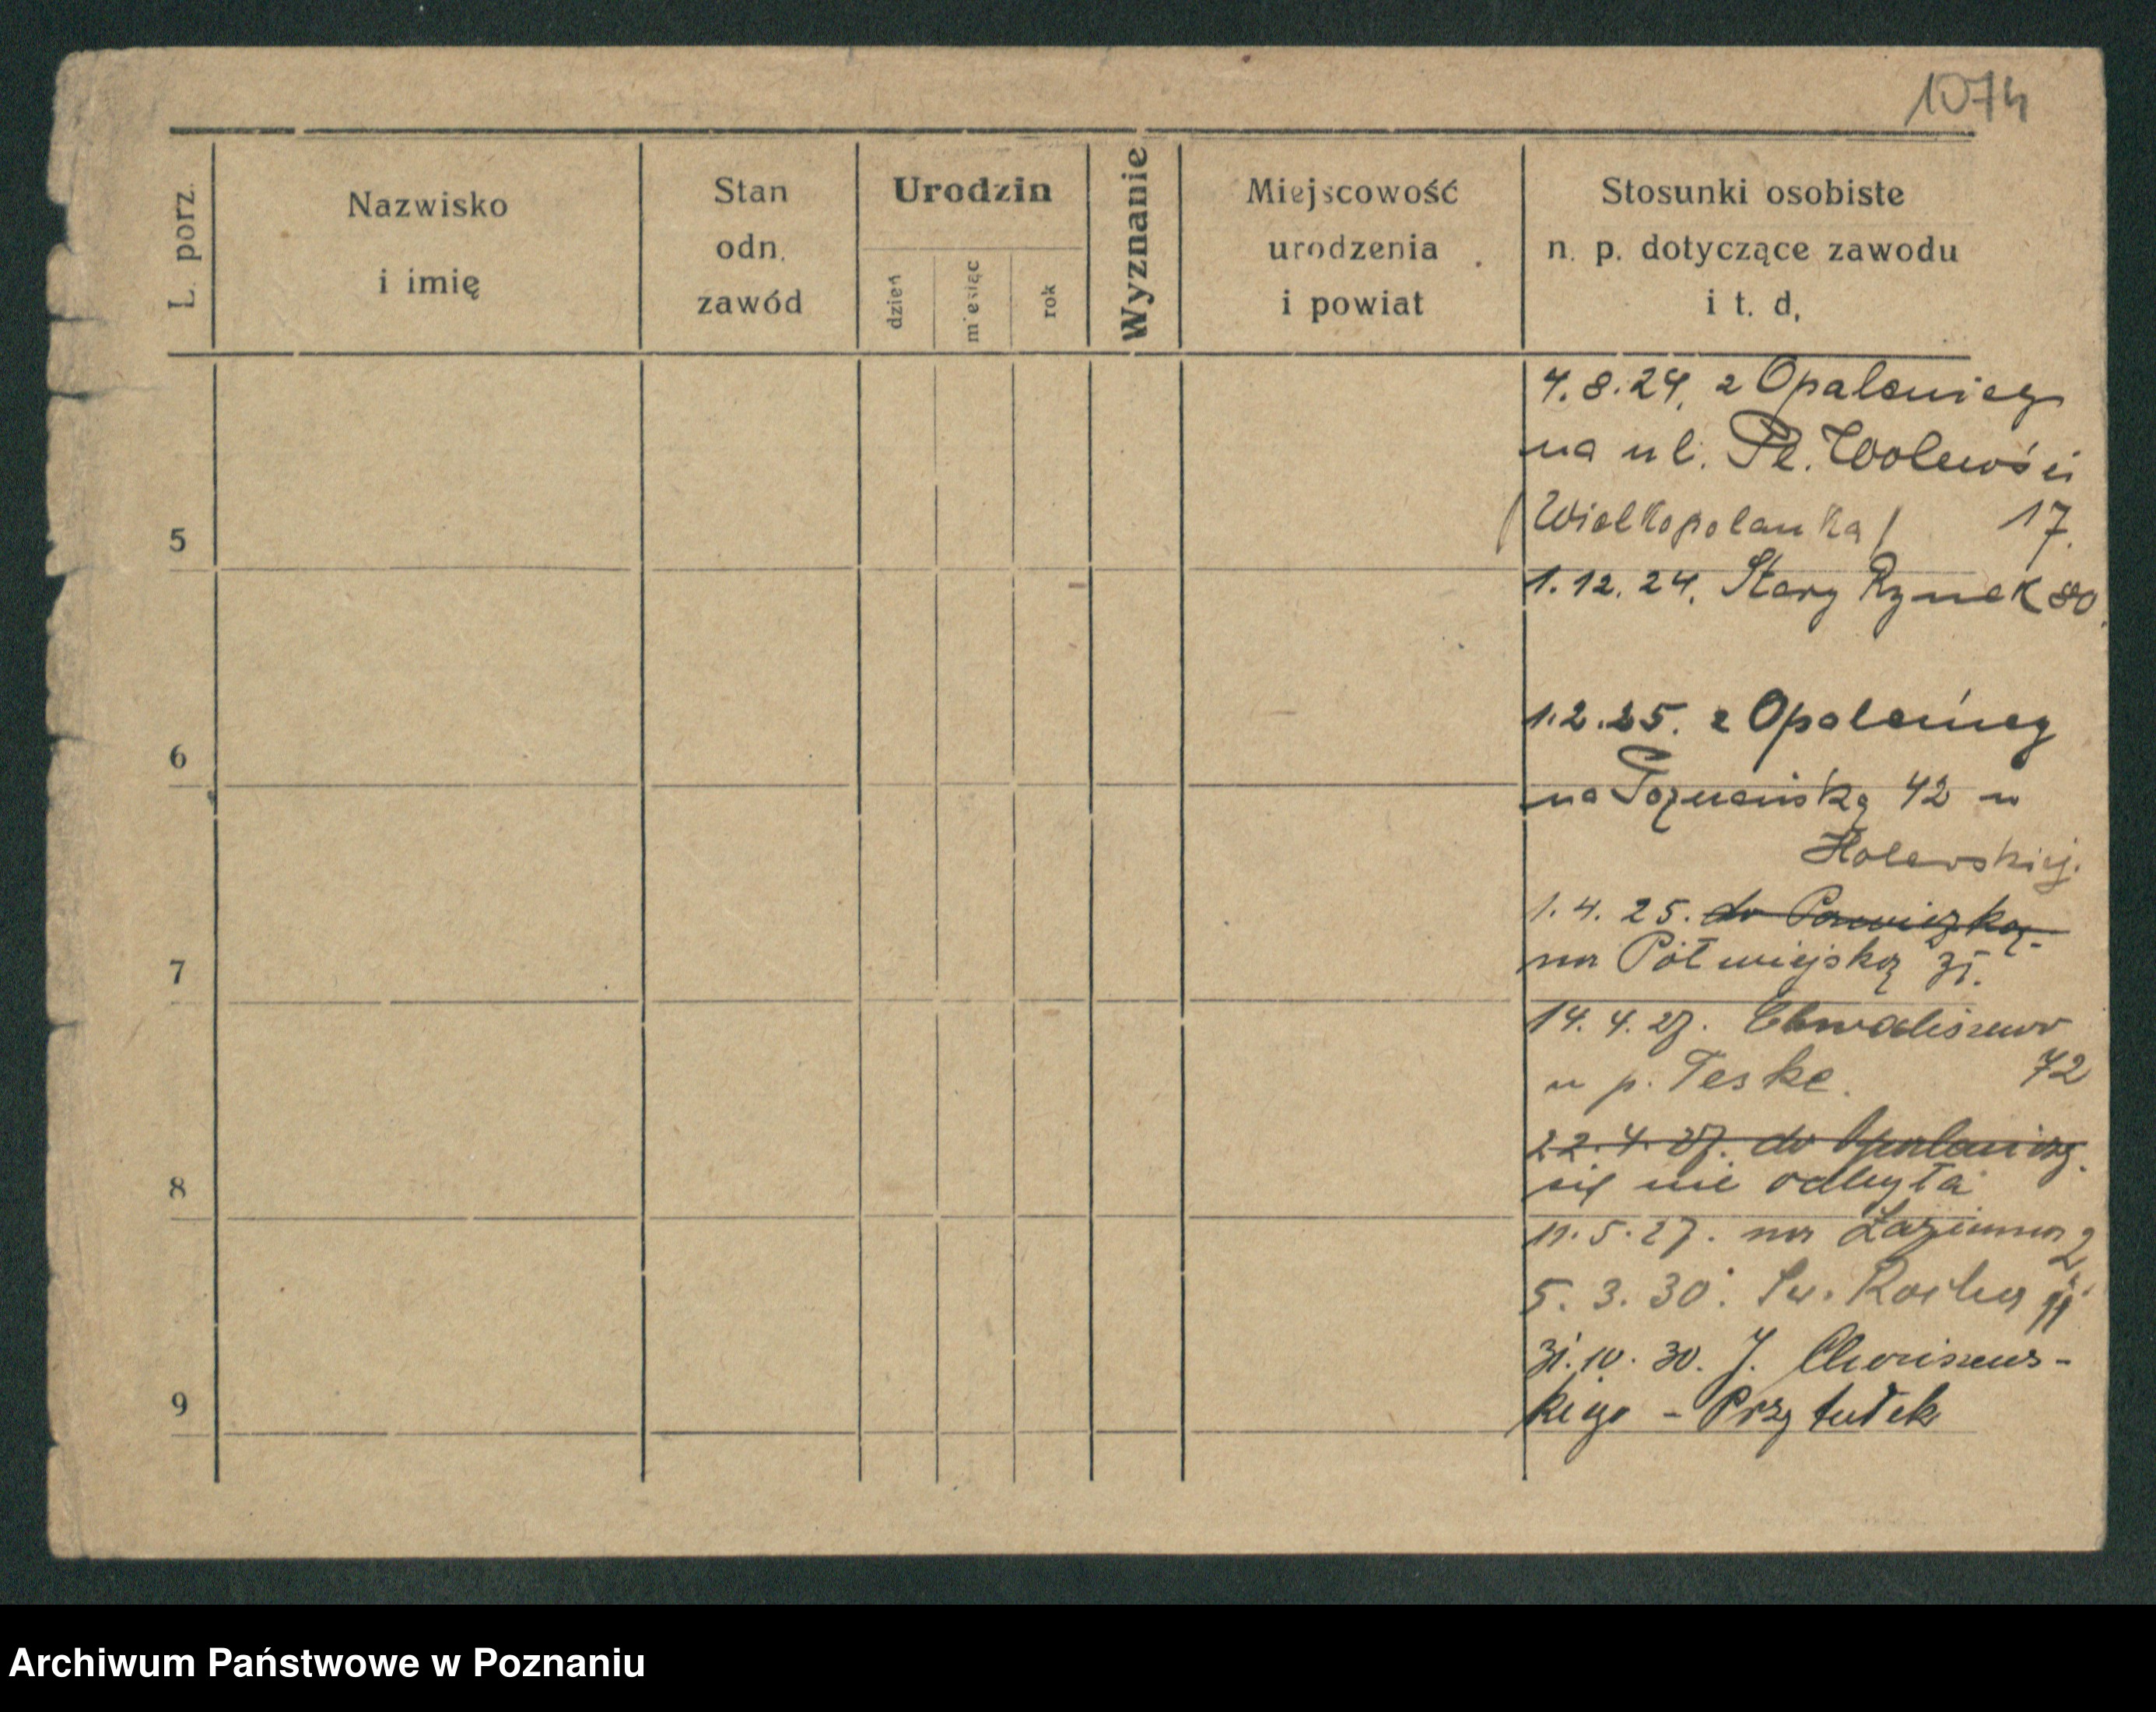 1074
L. porz.
Nazwisko
i imię
Stan
odn.
zawód
Urodzin
dzień
miesiąc
rok
Wyznanie
Miejscowość
urodzenia
i powiat
Stosunki osobiste
n. p. dotyczące zawodu
i t. d,
4.8.24. z Opalenicy
na ul. Pl. Wolności
(Wielkopolanka) 17.
5
1.12.24. Stary Rynek 80.
1.2.25. z Opalenicy
6
na Poznańską 42 u
1.4.25. do
na Półwiejską 31.
7
14.4.27. Chwaliszewo
u p. Teske. 72
22.4.27. do Opalenicy.
się nie odbyła
8
11.5.27. na Łazienną 2
5.3.30. Św. Rocha
31.10.30. J.
kiego - Przytułek
9
Archiwum Państwowe w Poznaniu